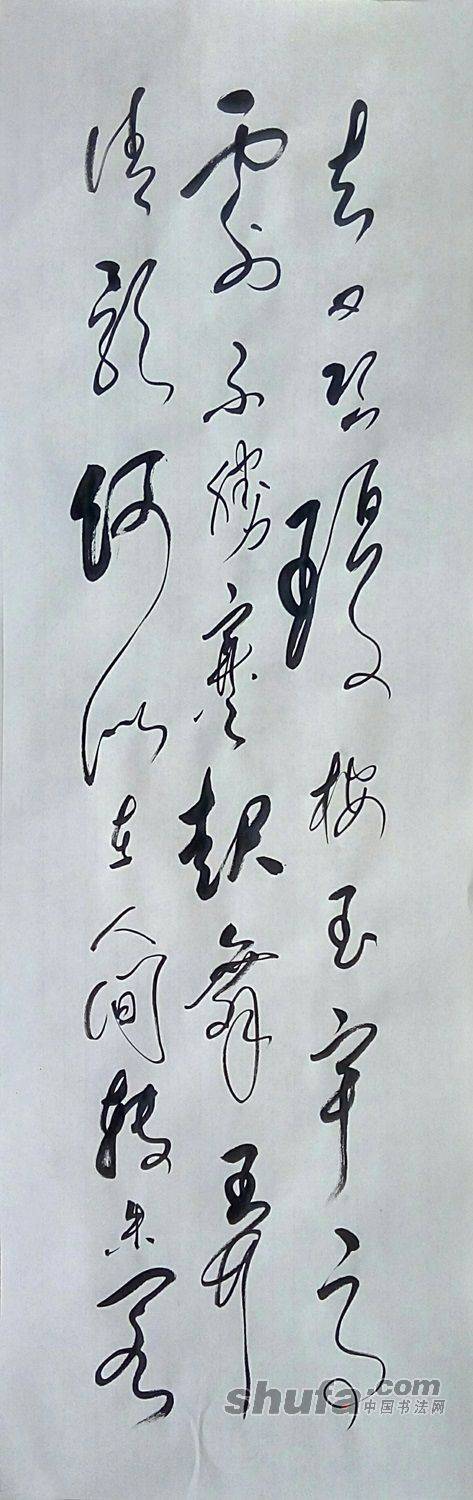 去又恐瓊楼玉宇高
處不勝寒起舞弄
清影何似在人间轉朱阁
shufa.com
中国书法网